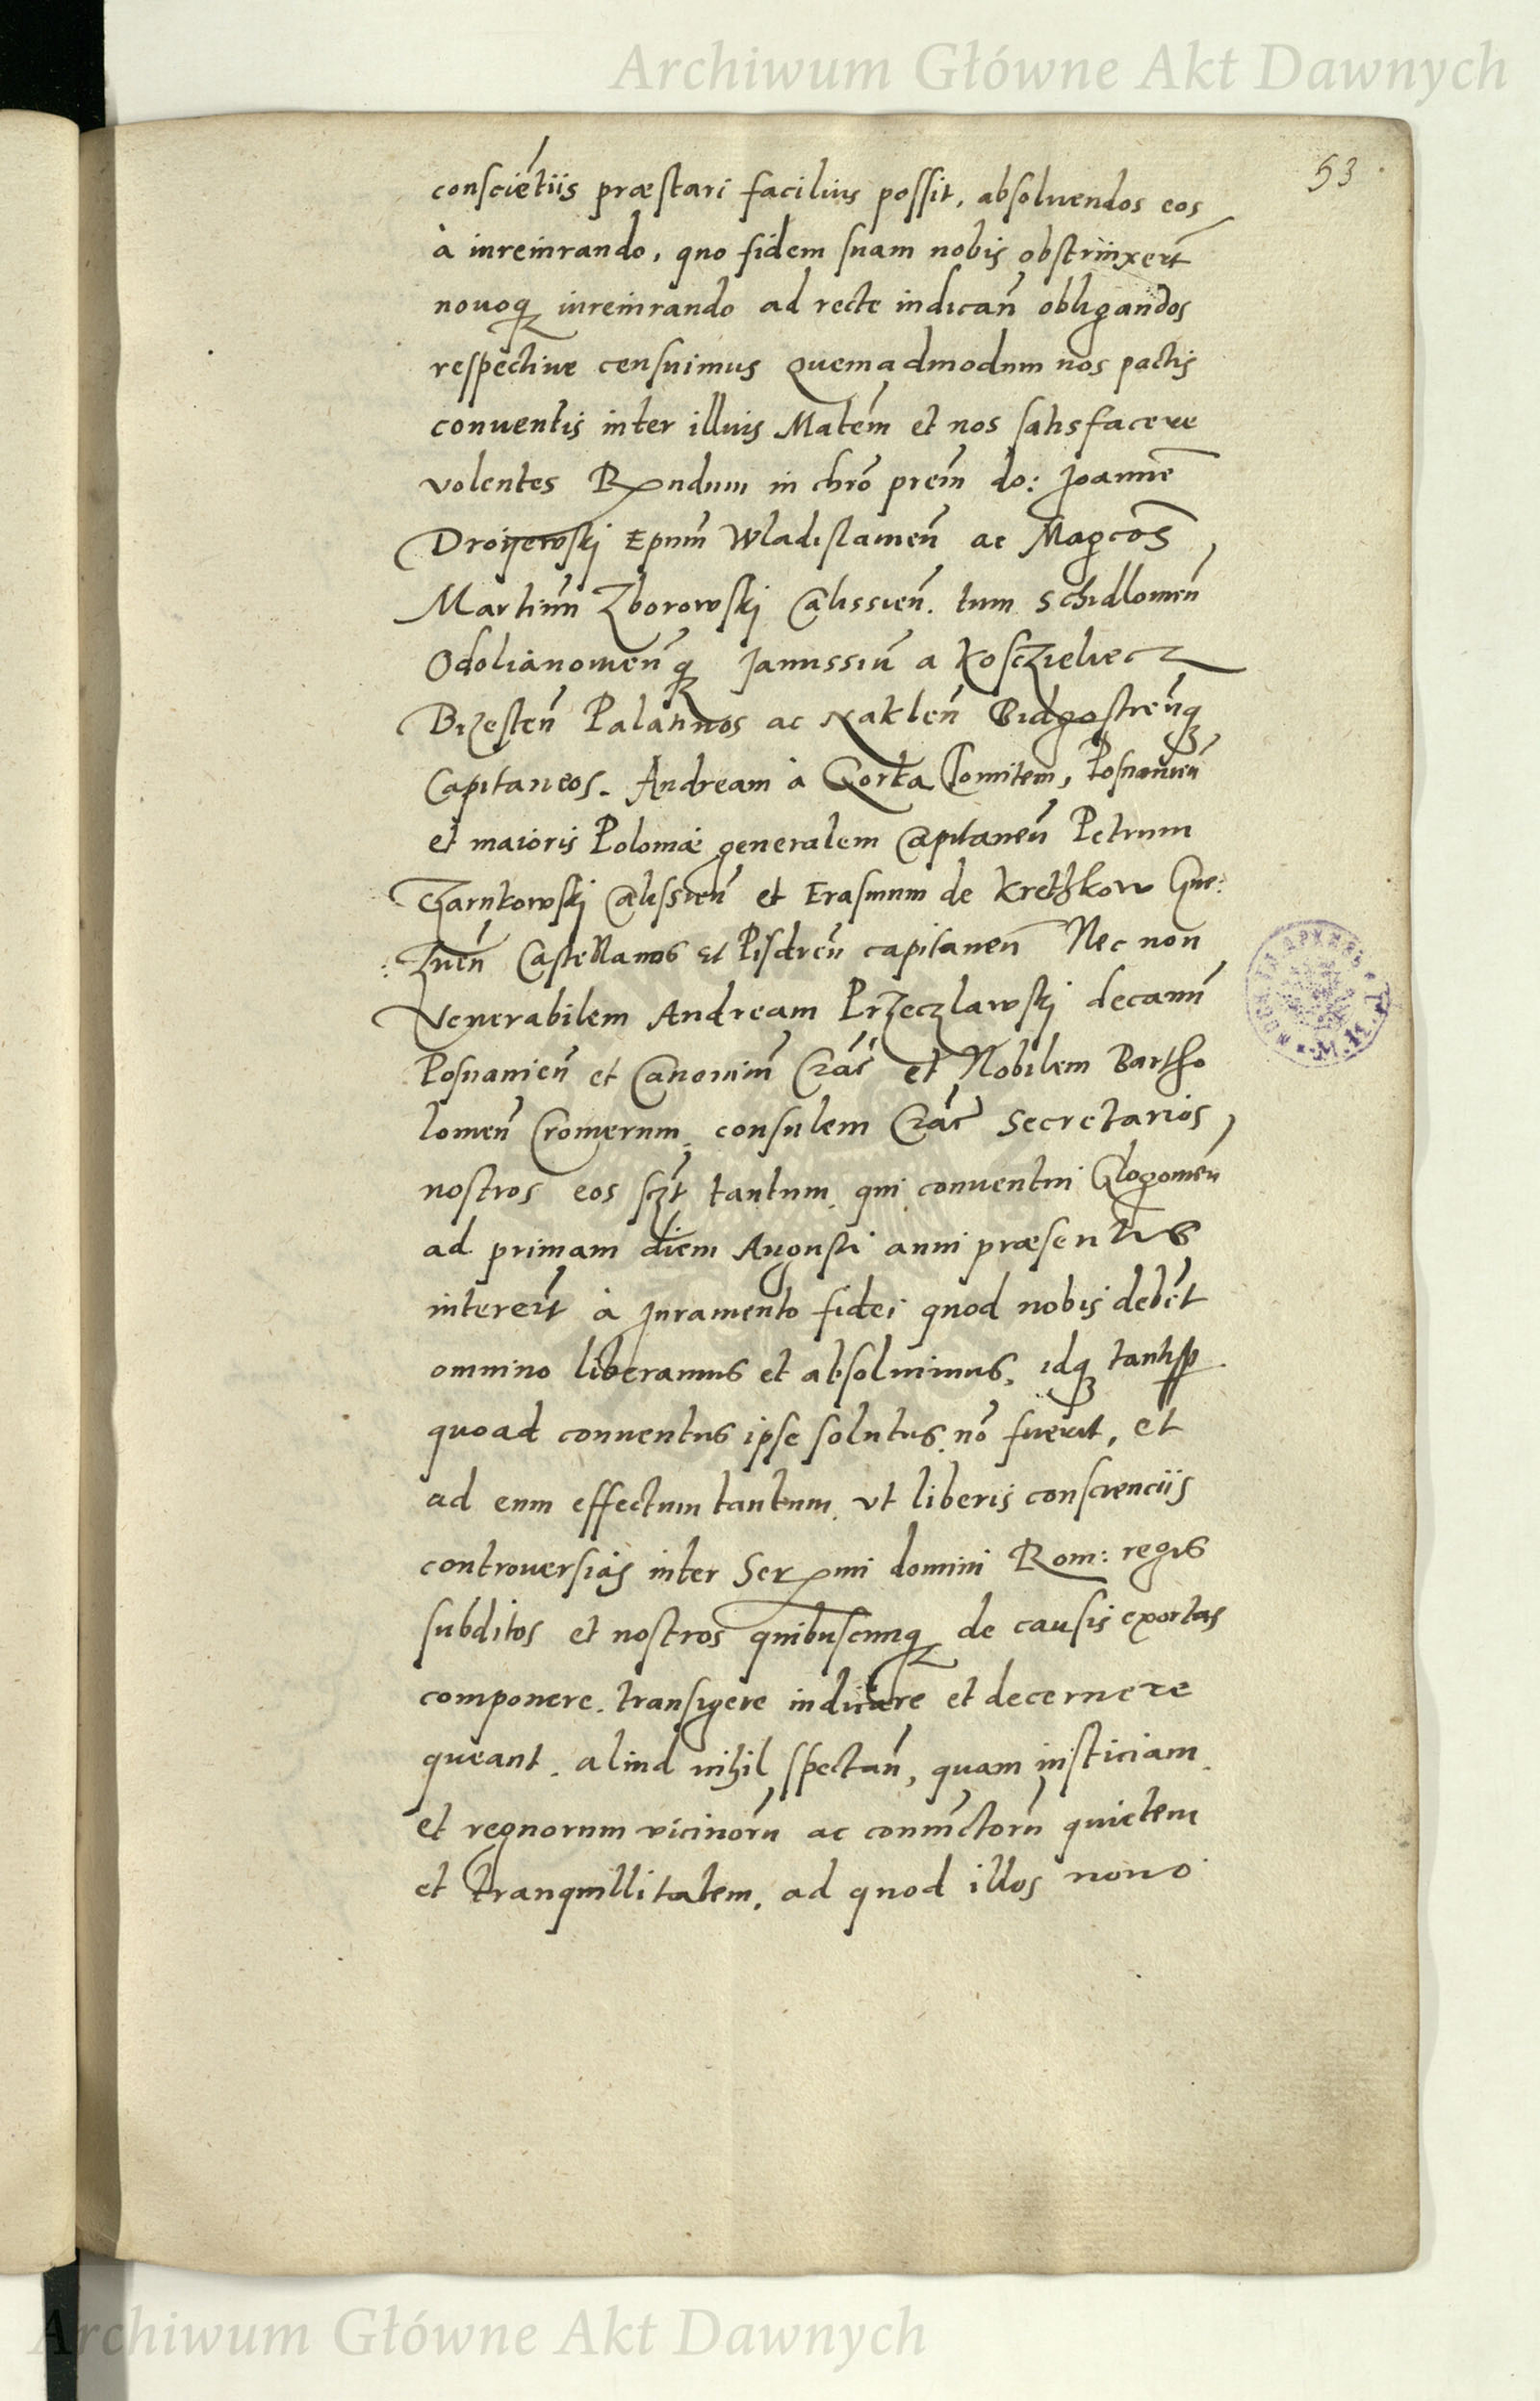 Archiwum Główne Akt Dawnych
53
consciẽtiis præstari facilius possit, absoluendos eos
à iureiurando, quo fidem suam nobis obstrinxerũt
nouoq; iureiurando ad recte iudicañ obligandos
respectiue censuimus Quemadmodum nos pactis
conuentis inter illius Matem̃ et nos satisfacere
volentes Rndum in chrõ prem̃ do: Joannẽ
Droijewskj Epum̃ Wladislauieñ ac Magcos
Martinũ Zborowskj Calissieñ. tum Schidlouieñ
Odolianouieñq; Janussiũ a Kosczieliecz
Brzesteñ Palatinos ac Nakleñ Bidgostieñq;
Capitaneos. Andream à Gorka Comitem, Posnanieñ
et maioris Poloniæ generalem Capitaneũ Petrum
Czarnkowskj Calissieñ et Erasmum de Krethkow Gne:
:zneñ Castellanos et Pisdreñ capitaneũ Nec non
Venerabilem Andream Przeczlawskj decanũ
Posnanieñ et Canonicũ Crac̃ et Nobilem Bartho
lomeũ Cromerum, consulem Crac̃ Secretarios
nostros eos sczt tantum, qui conuentui Glogouieñ
ad primam diem Augusti anni præsentis
intererũt à Juramento fidei quod nobis debẽt
omnino liberamus et absoluimus, idq; tantisp
quoad conuentus ipse solutus nõ fuerit, et
ad eum effectum tantum, vt liberis consciencijs
controuersias inter Sermi domini Rom: regis
subditos et nostros quibuscunq; de causis exortas
componere, transigere iudicare et decernere
queant, aliud nihil spectañ, quam iusticiam
et regnorum vicinorũ ac coniunctorũ quietem
et tranquillitatem, ad quod illos nouo
Archiwum Główne Akt Dawnych